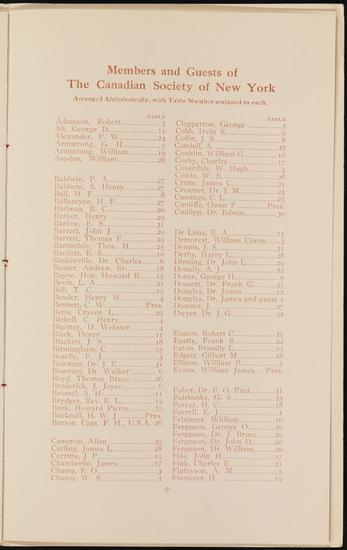 Members and Guests of
The Canadian Society of New York
Arranged Alphabetically, with Table Number assigned to each.
TABLE
Adamson, Robert 3
Ali, George D. 11
Alexander, P. W. 24
Armstrong, G. H. 5
Armstrong, William 19
Aspden, William 28
Baldwin, P. A. 27
Baldwin, S. Henry 27
Ball, H. F. 8
Ballantyne, H. F. 27
Barbeau, R. C. 20
Barber, Henry 29
Barlow, E. S. 31
Barrett, John J. 29
Barrett, Thomas F. 29
Bartindale, Thos. H. 25
Bartlett, E. E. 10
Baskerville, Dr. Charles 6
Baxter, Andrew, Sr. 18
Bayne, Hon. Howard R. 15
Bevin, L. A. 25
Bell, T. C. 15
Bender, Henry W. 4
Bennett, C. W. Pres.
Betts, Craven L. 25
Bickell, C. Henry 4
Bigoney, D. Webster 4
Black, Henry 11
Blackett, J. S. 18
Birmingham, C. 25
Boselly, F. J. 3
Bowman, Dr. J. E. 31
Bowman, Dr. Walker 6
Boyd, Thomas Bruce 26
Broderick, J. Joyce 6
Bromel, A. H. 11
Brydges, Rev. R. L. 12
Buck, Howard Pierce 30
Bucknall, H. W. J. Pres.
Burton, Capt. F. H., U.S.A. 26
Cameron, Allan 31
Carling, James L. 28
Carritte, J. P. 10
Chamberlin, James 17
Champ, E. O. 3
Champ, W. S. 3
TABLE
Clapperton, George 3
Cobb, Irvin S. 9
Coffin, J. S. 8
Condell, A. 27
Conklin, William G. 16
Corby, Charles 17
Coverdale, W. Hugh 4
Cowie, W. S. 28
Crane, James C. 21
Creamer, Dr. J. M. 23
Cumings, C. L. 25
Cunliffe, Owen F. Pres.
Cudlipp, Dr. Edwin 30
De Lima, E. A. 15
Demorest, William Curtis 3
Dennis, J. S. 31
Derby, Harry L. 28
Dinning, Dr. John L. 29
Donally, A. J. 32
Doran, George H. 9
Dossert, Dr. Frank G. 35
Douglas, Dr. James 12
Douglas, Dr. James and guest 1
Downer, J. 27
Dwyer, Dr. J. G. 32
Easton, Robert C. 35
Eastty, Frank S. 22
Eaton, Brandly L. 19
Edgett, Gilbert M. 18
Ellison, William B. 5
Evans, William James Pres.
Faber, Dr. F. O. Paul 31
Fairbanks, G. R. 33
Farrar, H. C. 18
Farrell, E. J. 1
Felsinger, William 16
Ferguson, George O. 26
Ferguson, Dr. J. Bruce 29
Ferguson, Dr. John D. 20
Ferguson, Dr. William 20
Fife, John H. 17
Fink, Charles E. 21
Finlayson, A. M. 5
Finsterer, H. 19
9